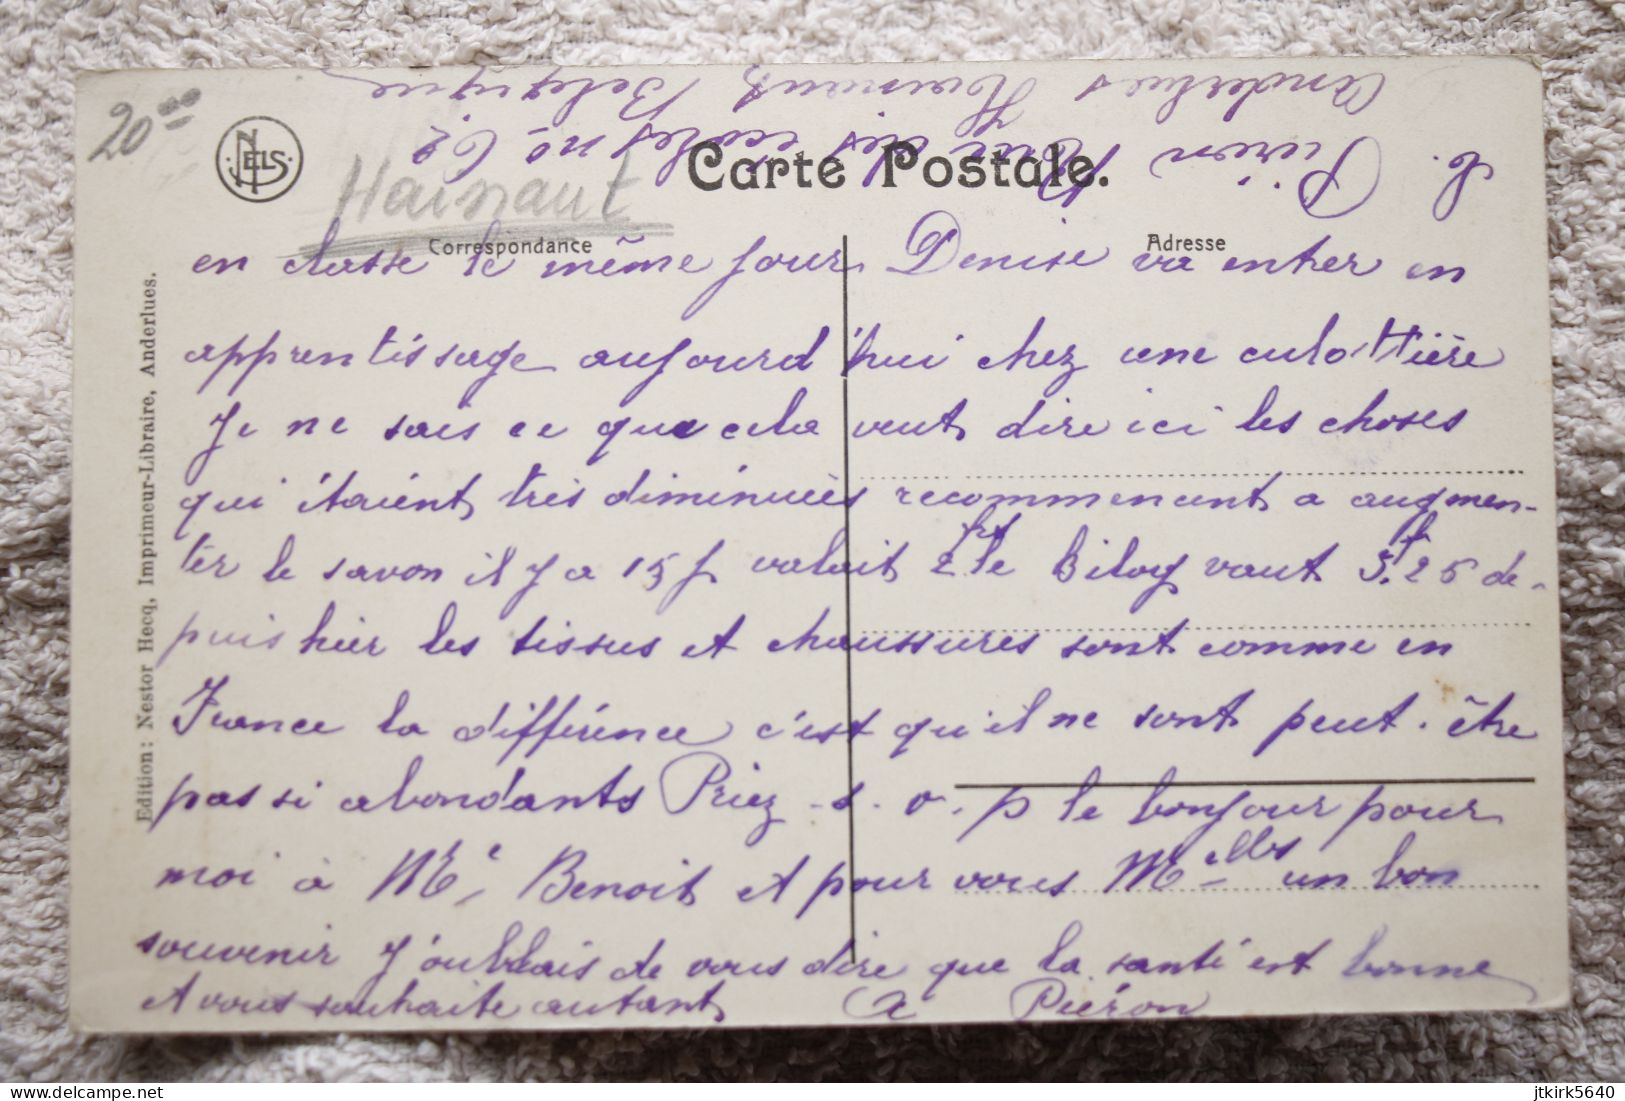 20.00
NELS
Hainaut
Carte Postale.
Correspondance
Adresse
Edition: Nestor Hecq, Imprimeur-Libraire, Anderlues.
Pieron Rue des écoles no 62
Anderlues Hainaut Belgique
en classe le même jour. Denise va entrer en
apprentissage aujourd'hui chez une culottière
Je ne sais ce que cela veut dire ici les choses
qui étaient très diminuées recommencent a augmen-
ter le savon il y a 15 j valait 2 frt le kilog vaut 3.f 25 de-
puis hier les tissus et chaussures sont comme en
France la différence c'est qu'il ne sont peut-être
pas si abondants Priez s. v. p le bonjour pour
moi à Benoit et pour vous Melles un bon
souvenir J'oubliais de vous dire que la santé est bonne
et vous souhaite autant Piéron
jtkirk5640
delcampe.net